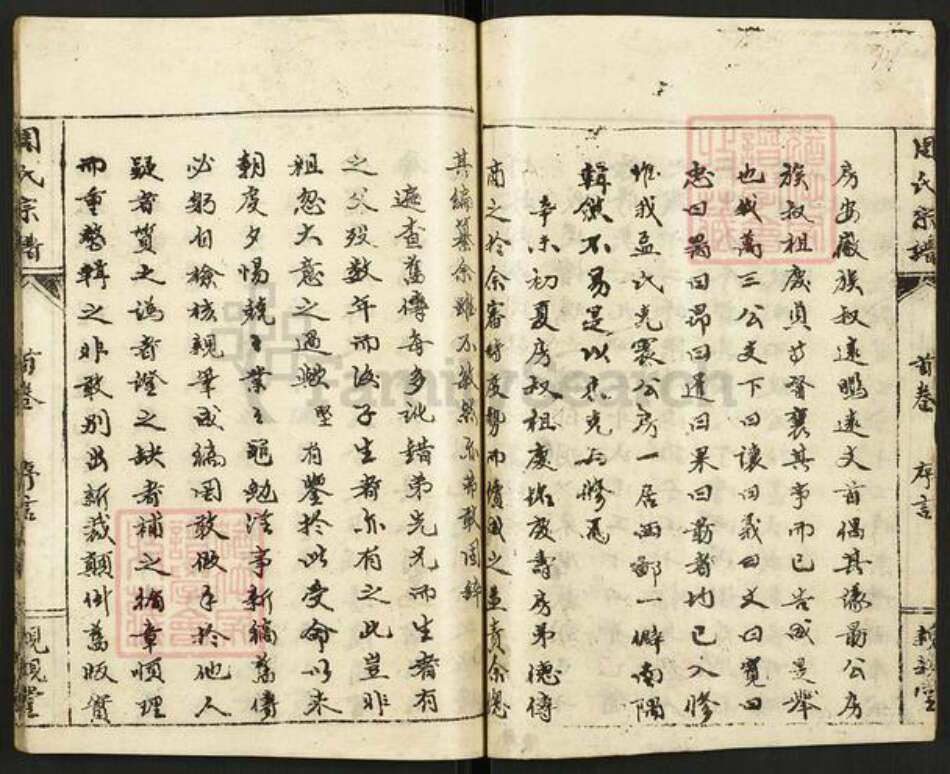 周氏宗譜
首卷
序言
親親堂
房安嚴族叔遠鵬遠文首偶其議勗公房
族叔祖慶貞等督襄其事而已告成是舉
也我萬三公支下曰讓曰義曰文曰寬曰
忠曰勗曰昂曰道曰果曰勗者均已入修
惟我孟氏克寰公房一居西鄙一僻南隅
輯做不易是以未克與修焉
辛未初夏房叔祖慶 慶壽房弟德傳
商之於余審時度勢而 成之並責余總
其編纂余雖不敏然亦弗敢固辭
遍查舊傳每多訛錯弟先兄而生者有
之父歿數年而後子生者亦有之此豈非
祖忽大意之過歟 堅 有鑒於此受命以來
朝虔夕惕兢兢業業黽勉從事新稿舊傳
必躬自檢核親筆成稿罔敢假手於他人
疑者質之譌者證之缺者補之摘章順理
而重整輯之非敢別出新裁顛倒舊版實
周氏宗譜
首卷
序言
親親堂
FamilySearch